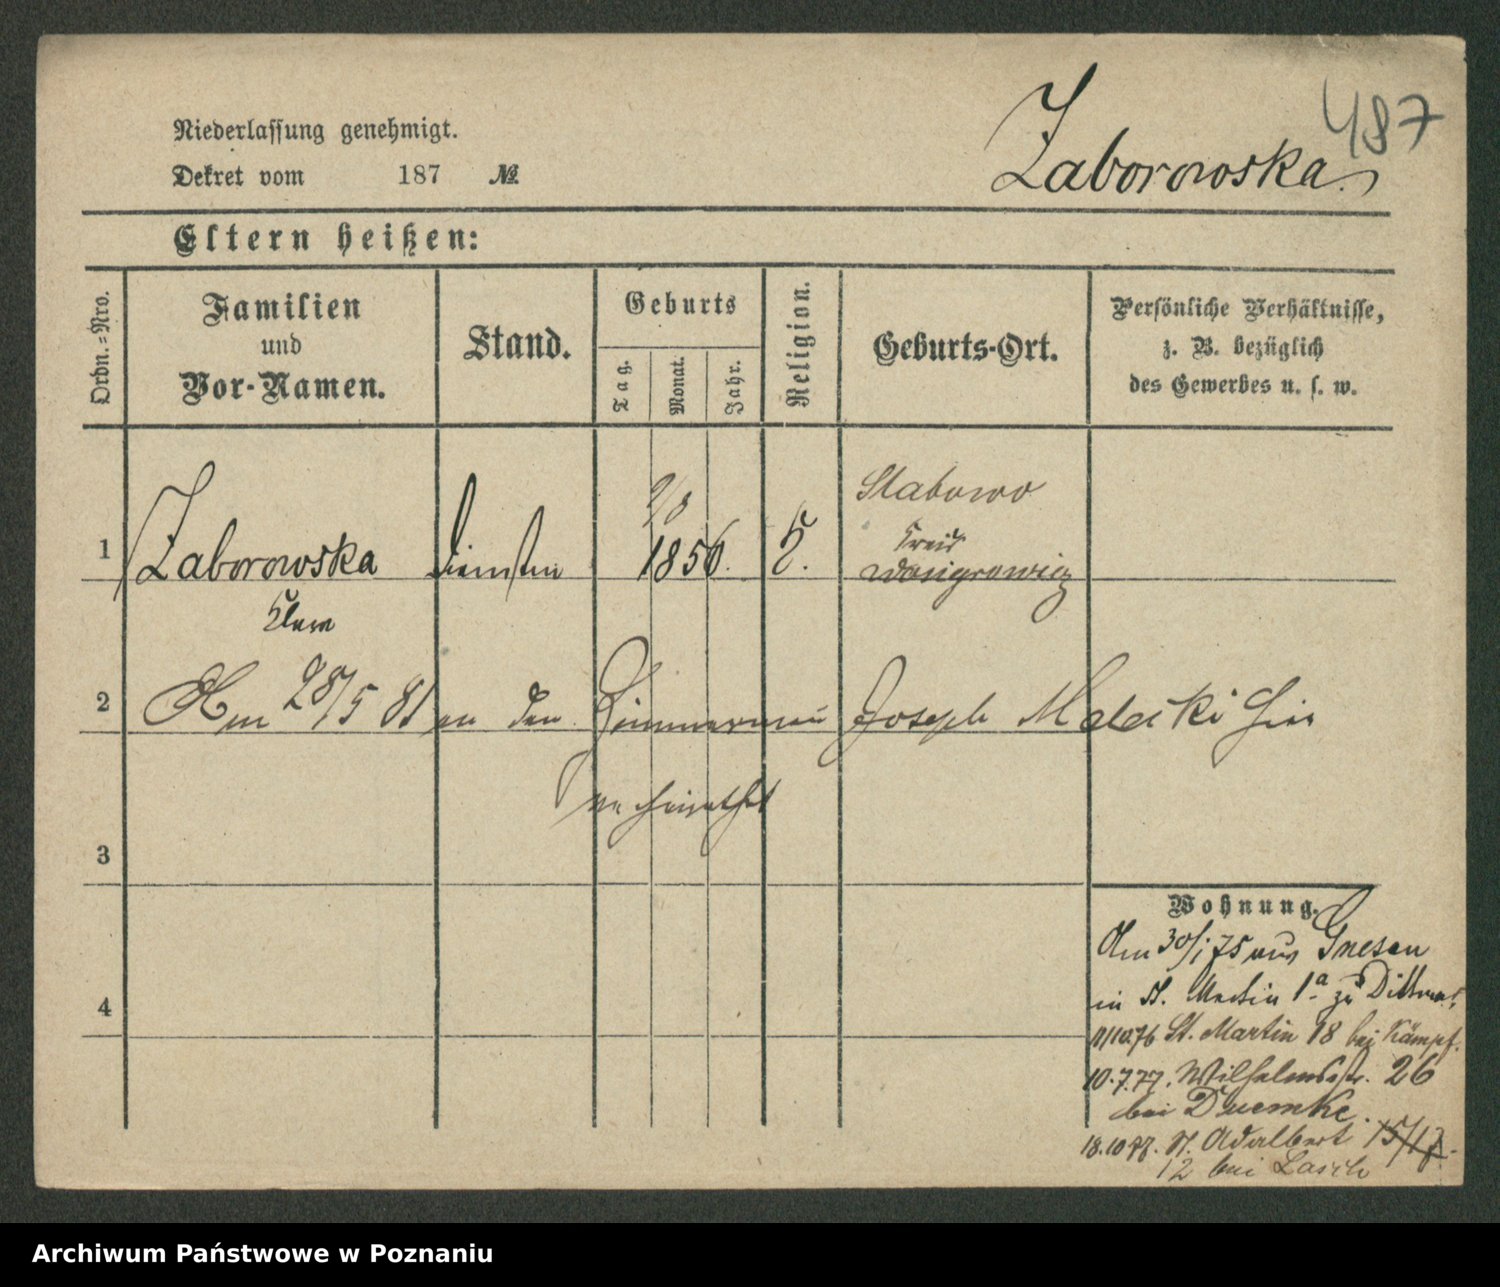 487
Niederlassung genehmigt.
Dekret vom 187 №
Zaborowska.
Eltern heißen:
Ordn.-Nro.
Familien
und
Vor-Namen.
Stand.
Geburts
Tag.
Monat.
Jahr.
Religion.
Geburts-Ort.
Persönliche Verhältnisse,
z. B. bezüglich
des Gewerbes u. s. w.
1
Zaborowska
1856.
k.
Kreis
Wongrowicz
Clara
2
Am 28/5 81 an den Zimmermann Joseph Malecki hier
verheirathet
3
4
Wohnung.
Am 30/1 75 aus Gnesen
in St. Martin 1a zu
11/10.76 St. Martin 18 bei Kämpf.
10.7.77. Wilhelmsstr. 26
bei Duemke.
18.10.77. St. Adalbert 15/17.
12 bei Lasch
Archiwum Państwowe w Poznaniu